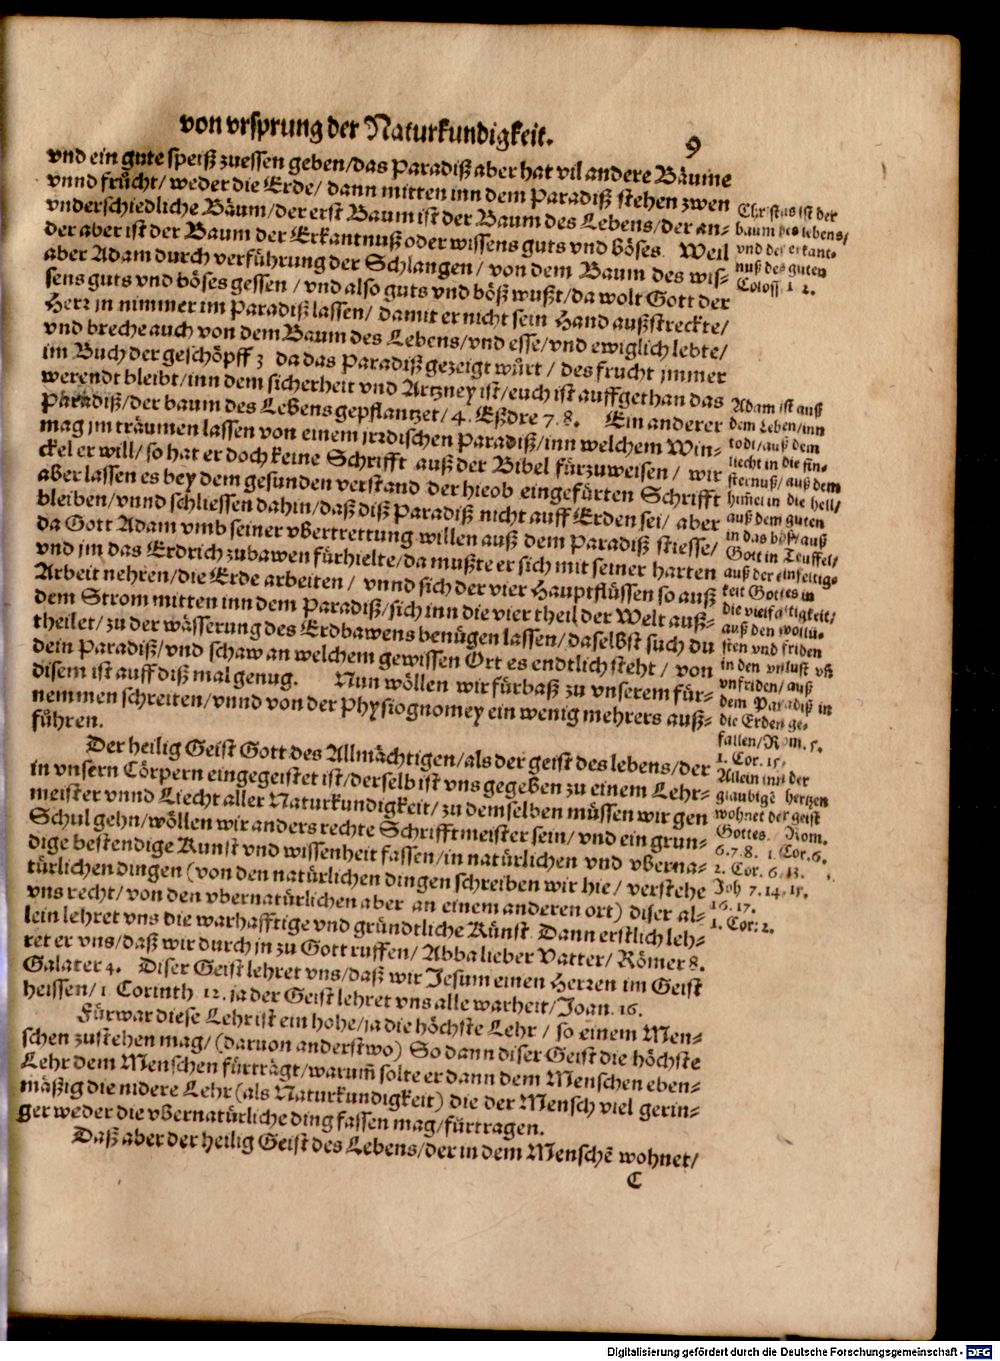 von vrsprung der Naturkundigkeit.
9
vnd ein gute speiß zuessen geben/das Paradiß aber hat vil andere Bäume
vnnd frücht/ weder die Erde/ dann mitten inn dem Paradiß stehen zwen
vnderschiedliche Bäum/der erst Baum ist der Baum des Lebens/der an-
der aber ist der Baum der Erkantnuß oder wissens guts vnd böses. Weil
aber Adam durch verführung der Schlangen/ von dem Baum des wis-
sens guts vnd böses gessen/ vnd also guts vnd böß wußt/da wolt Gott der
Herr jn nimmer im Paradiß lassen/ damit er nicht sein Hand außstreckte/
vnd breche auch von dem Baum des Lebens/vnd esse/vnd ewiglich lebte/
im Buch der geschöpff 3 da das Paradiß gezeigt würt/ des frucht jmmer
werendt bleibt/inn dem sicherheit vnd Artzney ist/euch ist auffgethan das
Paradiß/der baum des Lebens gepflantzet/ 4. Eßdre 7. 8. Ein anderer
mag jm träumen lassen von einem jrrdischen Paradiß/inn welchem Win-
ckel er will/ so hat er doch keine Schrifft auß der Bibel fürzuweisen/ wir
aber lassen es bey dem gesunden verstand der hieob eingefürten Schrifft
bleiben/vnnd schliessen dahin/daß diß Paradiß nicht auff Erden sei/ aber
da Gott Adam vmb seiner vbertrettung willen auß dem Paradiß stiesse/
vnd jm das Erdrich zubawen fürhielte/da mußte er sich mit seiner harten
Arbeit nehren/die Erde arbeiten/ vnnd sich der vier Hauptflüssen so auß
dem Strom mitten inn dem Paradiß/sich inn die vier theil der Welt auß-
theilet/ zu der wässerung des Erdbawens benügen lassen/daselbst such du
dein Paradiß/vnd schaw an welchem gewissen Ort es endtlich steht/ von
disem ist auff diß mal genug. Nun wöllen wir fürbaß zu vnserem für-
nemmen schreiten/vnnd von der Physiognomey ein wenig mehrers auß-
führen.
Der heilig Geist Gott des Allmächtigen/als der geist des lebens/der
in vnsern Cörpern eingegeistet ist/derselb ist vns gegeben zu einem Lehr-
meister vnnd Liecht aller Naturkundigkeit/ zu demselben müssen wir gen
Schul gehn/wöllen wir anders rechte Schrifftmeister sein/ vnd ein grun-
dige bestendige Kunst vnd wissenheit fassen/in natürlichen vnd vberna-
türlichen dingen (von den natürlichen dingen schreiben wir hie/ verstehe
vns recht/ von den vbernatürlichen aber an einem anderen ort) diser al-
lein lehret vns die warhafftige vnd gründtliche Künst. Dann erstlich leh-
ret er vns/daß wir durch jn zu Gott ruffen/ Abba lieber Vatter/ Römer 8.
Galater 4. Diser Geist lehret vns/daß wir Jesum einen Herren im Geist
heissen/ 1 Corinth 12. ja der Geist lehret vns alle warheit/Joan. 16.
Fürwar diese Lehr ist ein hohe/ja die höchste Lehr/ so einem Men-
schen zustehen mag/ (daruon anderstwo) So dann diser Geist die höchste
Lehr dem Menschen fürträgt/warum̄ solte er dann dem Menschen eben-
mäßig die nidere Lehr (als Naturkundigkeit) die der Mensch viel gerin-
ger weder die vbernatürliche ding fassen mag/fürtragen.
Daß aber der heilig Geist des Lebens/der in dem Menschē wohnet/
C
Christus ist der
baum des lebens/
vnd der erkant-
nuß des guten
Coloss 1 2.
Adam ist auß
dem Leben/inn
todt/auß dem
liecht in die fin-
sternuß/ auß dem
him̄el in die hell/
auß dem guten
in das böß/auß
Gott in Teuffel/
auß der einfeltig-
keit Gottes in
die vielfaltigkeit/
auß den wollü-
sten vnd friden
in den vnlust vn̄
vnfriden/ auß
dem Paradiß in
die Erden ge-
fallen/Rom. 5.
1. Cor. 15.
Allein inn der
glaubigē hertzen
wohnet der geist
Gottes. Rom.
6. 7. 8. 1. Cor. 6.
2. Cor. 6. 13.
Joh 7. 14. 15.
16. 17.
1. Cor: 2.
Digitalisierung gefördert durch die Deutsche Forschungsgemeinschaft - DFG